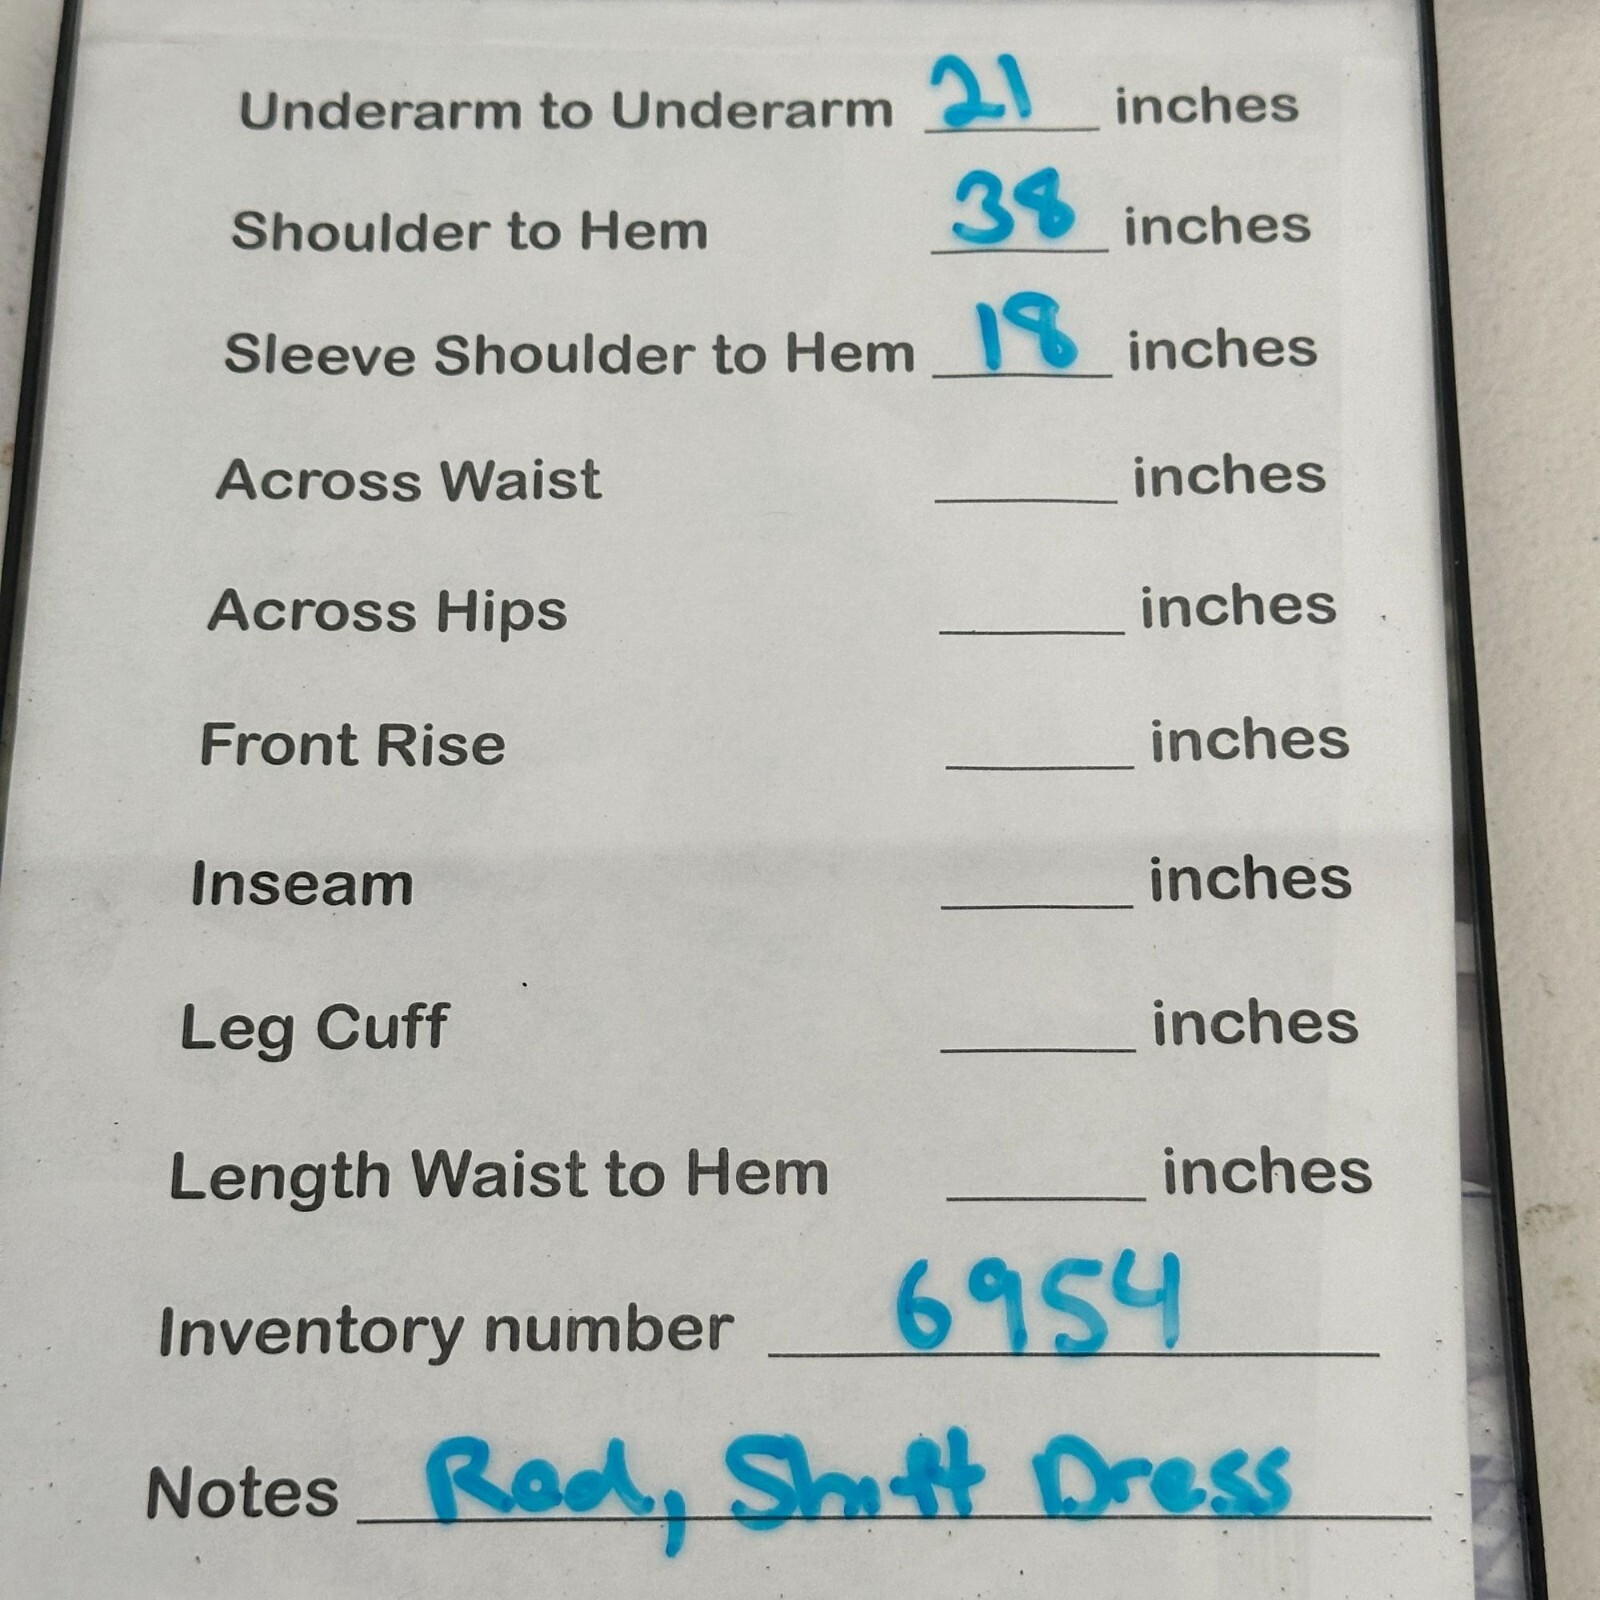 Underarm to Underarm 21 inches
Shoulder to Hem 38 inches
Sleeve Shoulder to Hem 18 inches
Across Waist ______ inches
Across Hips ______ inches
Front Rise ______ inches
Inseam ______ inches
Leg Cuff ______ inches
Length Waist to Hem ______ inches
Inventory number 6954
Notes Red, Shift Dress